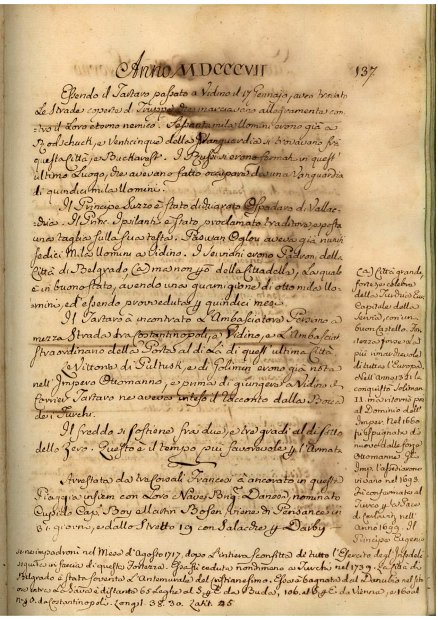 Anno MDCCCVII
137
Essendo il Tartaro passato a Vidino il 17 Gennajo, avea trovato
Le Strade coperte di Truppe, che marciavano allegramente con
tro il Loro eterno nemico. Sessanta mila Uomini erano già a
Rodschuck, e venticinque della Vanguardia si trovavano frà
questa Città, e Buckarest. I Russi si erano fermati in quest'
ultimo Luogo, che avevano fatto occupare da una Vanguardia
di quindici mila Uomini.
Il Principe Suzzo è stato dichiarato Ospodaro di Vallac-
chia. Il Princ. Ipsilanti è stato proclamato traditore, e posta
una taglia sulla sua testa. Paswan Oglou aveva già
sedici mila Uomini a Vidino. I Serviani erono Padroni della
Città di Belgrado (a) ma non già della Cittadella, La quale
è in buono stato, avendo una guarnigione di otto mila Uo-
mini, ed essendo proveduta quindici mesi.
Il Tartaro à incontrato L'Ambasciatore Persiano a
mezza Strada tra Costantinopoli, e Vidino, e L'Ambasciat
straordinario della Porta al di Là di quest' ultima Città
Le Vittorie di Pultusk, e di Golimin erono già note
nell' Impero Ottomanno, e prima di giungere a Vidino il
Tartaro ne aveva inteso il racconto dalla Bocca
de i Turchi.
Il freddo si sostiene fra due, e tre gradi al di sotto
dello Zero. Questo è il tempo più favorevole l'Armata
Arrestata da Corsali Francesi à ancorato in questa
Piazza insiem con Loro Naves Brig Danese, nominato
Cupido Cap. Boy
giorni, e dallo Stretto 19 con Salacche, e Darby
(a) Città grande,
forte, e celebre
della Turchia Eur.
Capitale della
Servia, con
un buon Castello.
Fortezza fra le
più rinomate
di tutta l'Europa.
Nell'anno
conquisto Soliman
II ma ritornò poi
al Dominio dell'
Imper. Nel 1690
fu espugnata di
nuovo dalle forze
Ottomane. Gl'
Imp. l'assediarono
nel 1693.
Fù confermata al
Turco pel trattato
di Carlowitz nell'
Anno 1699.
Il Principe Eugenio
se ne impadronì nel Mese d'Agosto 1717, dopo L'intiera sconfitta di tutto l'Esercito degl' Infedeli
seguita in faccia di questa Fortezza. Essa fù ceduta nondimeno a' Turchi nel 1739. La Città di
Belgrado è stata sovente L'Antemurale del Cristianesimo. Essa è bagnata del Danubio nel sito
ove entra La Sava è distante 65 Leghe al S. q. E. da Buda, 106. al S. q. E. da Vienna, e 160 al
N. q. O. da Costantinopoli. Longit. 38. 30. Latit. 45